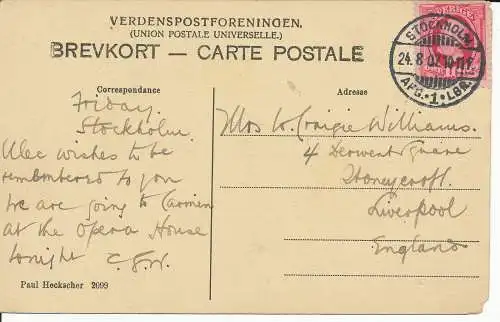 VERDENSPOSTFORENINGEN.
(UNION POSTALE UNIVERSELLE.)
BREVKORT — CARTE POSTALE
STOCKHOLM
24. 8. 07
AFG. 1. LBR.
Correspondance
Adresse
Friday
Stockholm.
Alec wishes to be
remembered to you
We are going to Carmen
at the Opera House
tonight C.G.W.
Mrs W. Craigie Williams.
4 Derwent Square
Stoneycroft.
Liverpool
England
Paul Heckscher 2099